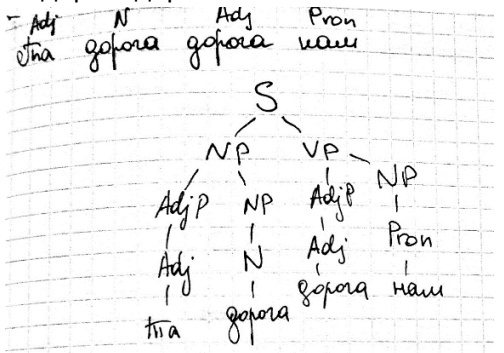 Adj N Adj Pron
Эта дорога дорога нам
S
NP VP
AdjP NP AdjP NP
Adj N Adj Pron
эта дорога дорога нам